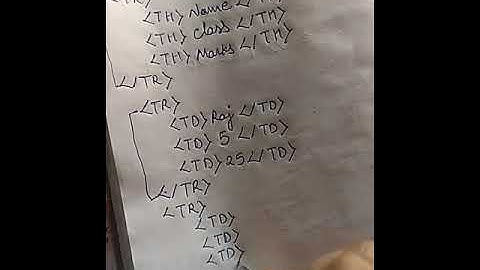 <TR>
<TH> Name </TH>
<TH> Class </TH>
<TH> Marks </TH>
</TR>
<TR>
<TD> Raj </TD>
<TD> 5 </TD>
<TD> 25 </TD>
</TR>
<TR>
<TD>
<TD>
<TD>